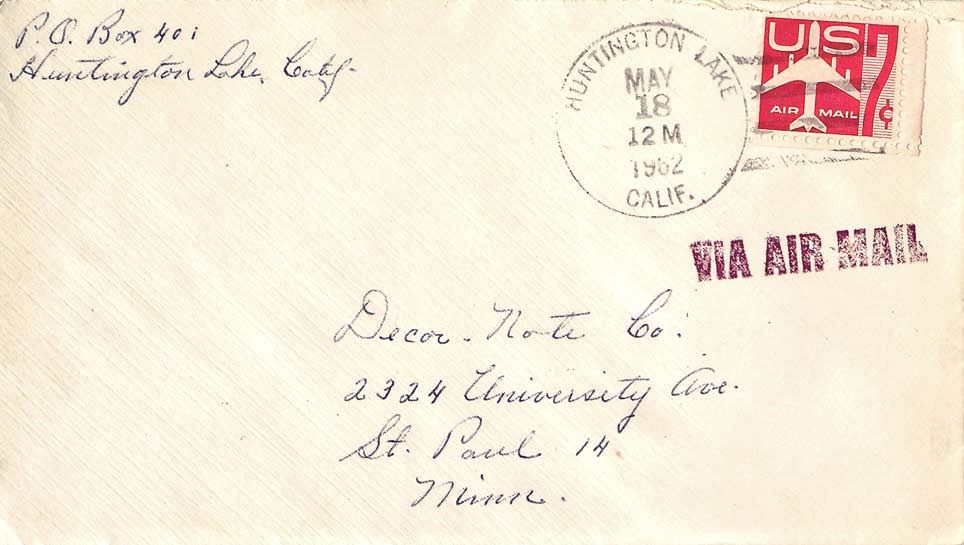 P.O. Box 401
Huntington Lake, Calif.
HUNTINGTON LAKE
MAY
18
12 M
1962
CALIF.
US
7¢
AIR MAIL
VIA AIR MAIL
Decor-Note Co.
2324 University Ave.
St. Paul 14
Minn.